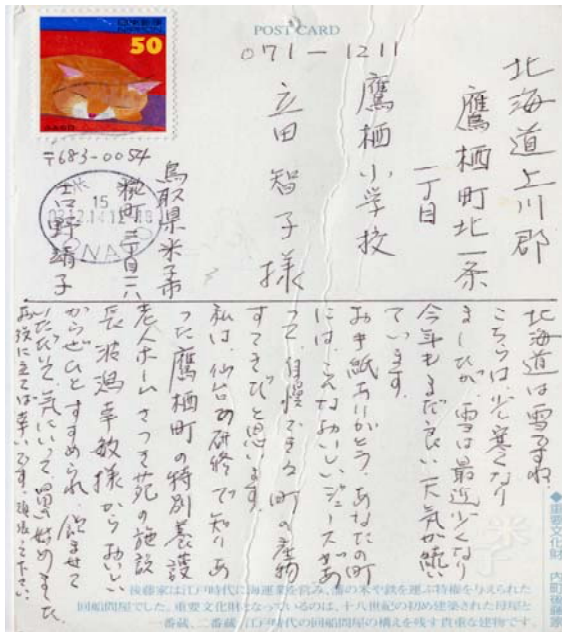 POST CARD
日本郵便
NIPPON
50
071-1211
北海道上川郡
鷹栖町北一条
一丁目
鷹栖小学校
立田智子様
〒683-0054
鳥取県米子市
糀町二丁目一六
吉野靖子
15
北海道は雪ですね。
こちらは、少し寒くなり
ましたが、雪は最近少くなり
今年もまだ良い天気が続い
ています。
お手紙ありがとう。あなたの町
には、こんなおいしいジュースがあ
って、自慢できる町の産物
すてきだと思います。
私は、仙台の研修で知りあ
った鷹栖町の特別養護
老人ホームさつき苑の施設
長波潟幸敏様からおいしい
からぜひとすすめられ、飲ませて
いただいて、気にいって買い始めました
お役に立てば幸いです。頑張って下さい。
◆重要文化財 内町後藤家
後藤家は江戸時代に海運業を営み、藩の米や鉄を運ぶ特権を与えられた
回船問屋でした。重要文化財となっているのは、十八世紀の初め建築された母屋と
一番蔵、二番蔵。江戸時代の回船問屋の構えを残す貴重な建物です。